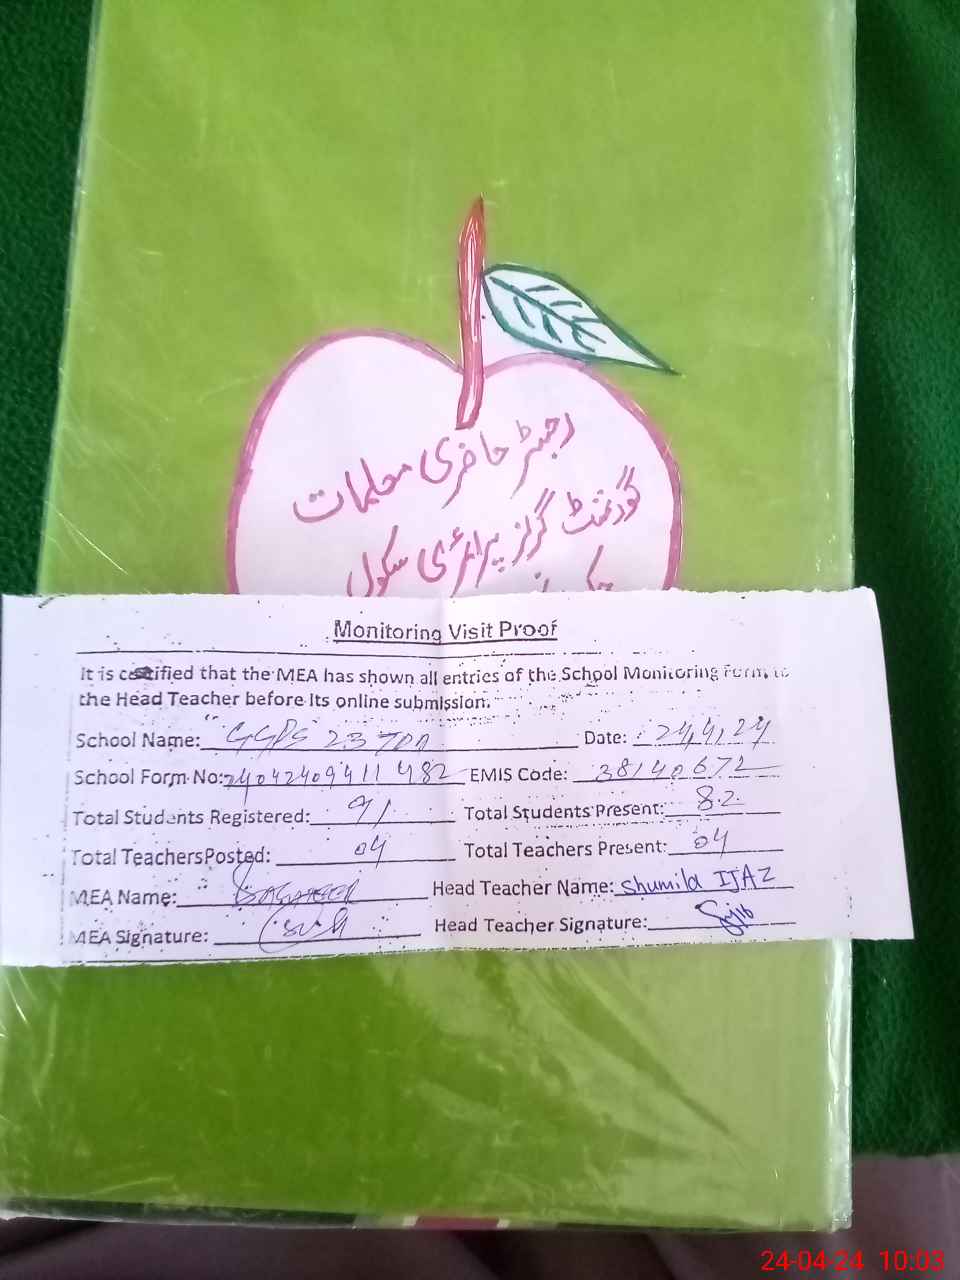 رجسٹر حاضری معلمات
گورنمنٹ گرلز پرائمری سکول
Monitoring Visit Proof
It is certified that the MEA has shown all entries of the School Monitoring Form to
the Head Teacher before its online submission.
School Name: GGPS 23 TDA Date: 24,4,24
School Form No: 2404240941148 2 EMIS Code: 38140672
Total Students Registered: 91 Total Students Present: 82
Total Teachers Posted: 04 Total Teachers Present: 04
MEA Name: Head Teacher Name: Shumila IJAZ
MEA Signature: Head Teacher Signature:
24-04-24 10:03